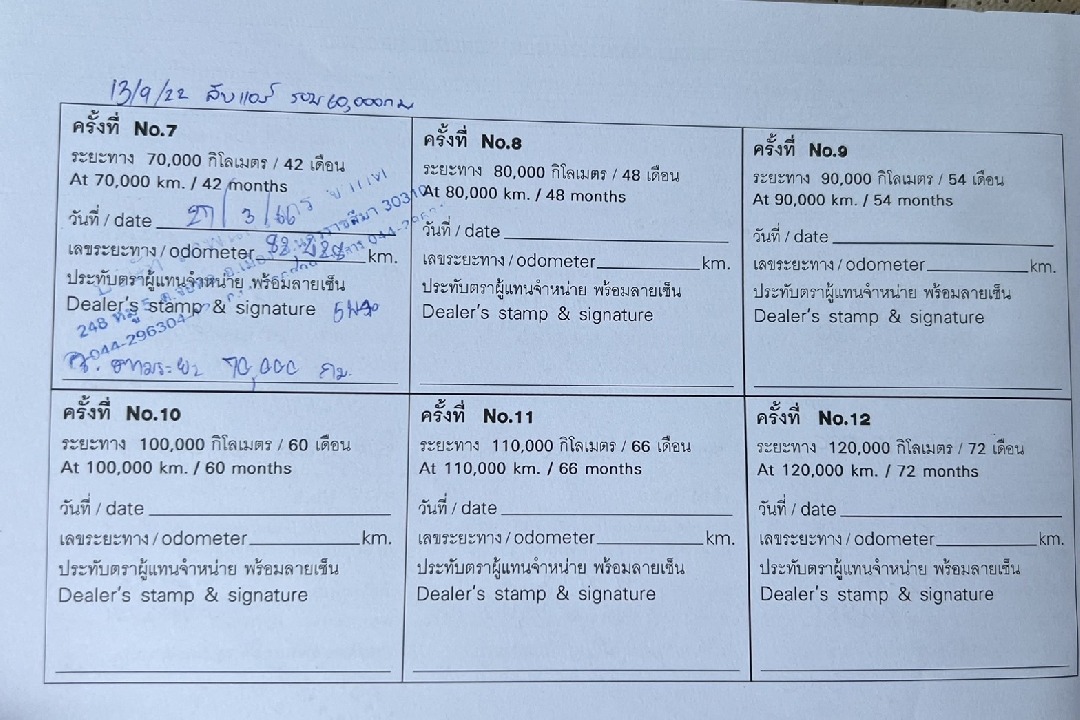 13/9/22 รอบ 60,000 กม
ครั้งที่ No.7
ระยะทาง 70,000 กิโลเมตร / 42 เดือน
At 70,000 km. / 42 months
วันที่ / date 27/3/66
เลขระยะทาง / odometer km.
ประทับตราผู้แทนจำหน่าย พร้อมลายเซ็น
Dealer's stamp & signature
นครราชสีมา 30310
248 หมู่
044-296304
70,000 กม.
ครั้งที่ No.8
ระยะทาง 80,000 กิโลเมตร / 48 เดือน
At 80,000 km. / 48 months
วันที่ / date
เลขระยะทาง / odometer km.
ประทับตราผู้แทนจำหน่าย พร้อมลายเซ็น
Dealer's stamp & signature
ครั้งที่ No.9
ระยะทาง 90,000 กิโลเมตร / 54 เดือน
At 90,000 km. / 54 months
วันที่ / date
เลขระยะทาง / odometer km.
ประทับตราผู้แทนจำหน่าย พร้อมลายเซ็น
Dealer's stamp & signature
ครั้งที่ No.10
ระยะทาง 100,000 กิโลเมตร / 60 เดือน
At 100,000 km. / 60 months
วันที่ / date
เลขระยะทาง / odometer km.
ประทับตราผู้แทนจำหน่าย พร้อมลายเซ็น
Dealer's stamp & signature
ครั้งที่ No.11
ระยะทาง 110,000 กิโลเมตร / 66 เดือน
At 110,000 km. / 66 months
วันที่ / date
เลขระยะทาง / odometer km.
ประทับตราผู้แทนจำหน่าย พร้อมลายเซ็น
Dealer's stamp & signature
ครั้งที่ No.12
ระยะทาง 120,000 กิโลเมตร / 72 เดือน
At 120,000 km. / 72 months
วันที่ / date
เลขระยะทาง / odometer km.
ประทับตราผู้แทนจำหน่าย พร้อมลายเซ็น
Dealer's stamp & signature